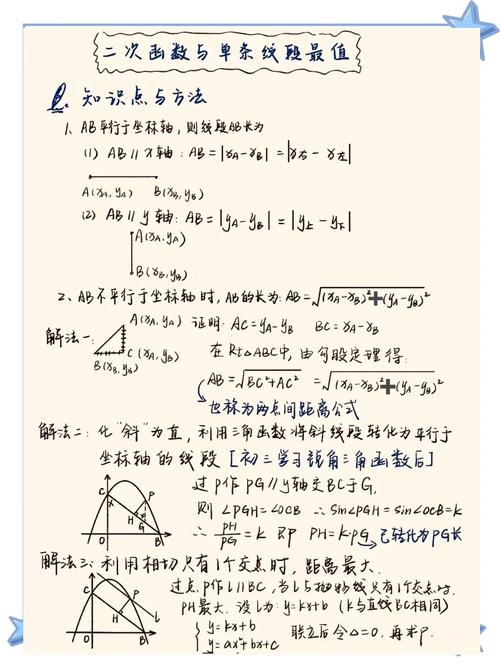 二次函数与单条线段最值
知识点与方法
1、AB平行于坐标轴,则线段AB长为
(1) AB∥x轴:AB=|xA-xB|=|x右-x左|
A(xA,yA) B(xB,yB)
(2) AB∥y轴:AB=|yA-yB|=|y上-y下|
A(xA,yA)
B(xB,yB)
2、AB不平行于坐标轴时,AB的长为:AB=√(xA-xB)²+(yA-yB)²
解法一: A(xA,yA) 证明:AC=yA-yB BC=xA-xB
C(xA,yB) 在Rt△ABC中,由勾股定理得:
B(xB,yB)
AB=√BC²+AC² =√(xA-xB)²+(yA-yB)²
也称为两点间距离公式
解法二:化"斜"为直,利用三角函数将斜线段转化为平行于
坐标轴的线段[初三学习锐角三角函数后]
过P作PG∥y轴交BC于G,
C P H G O B
则∠PGH=∠OCB ∴sin∠PGH=sin∠OCB=k
∴PH/PG=k 即 PH=k·PG 已转化为PG长
解法三:利用相切只有1个交点时,距离最大.
过点P作l∥BC,当l与抛物线只有1个交点时.
C P l H O B
PH最大.设l为:y=kx+b (k与直线BC相同)
{y=kx+b
y=ax²+bx+c 联立后令△=0,再求P.